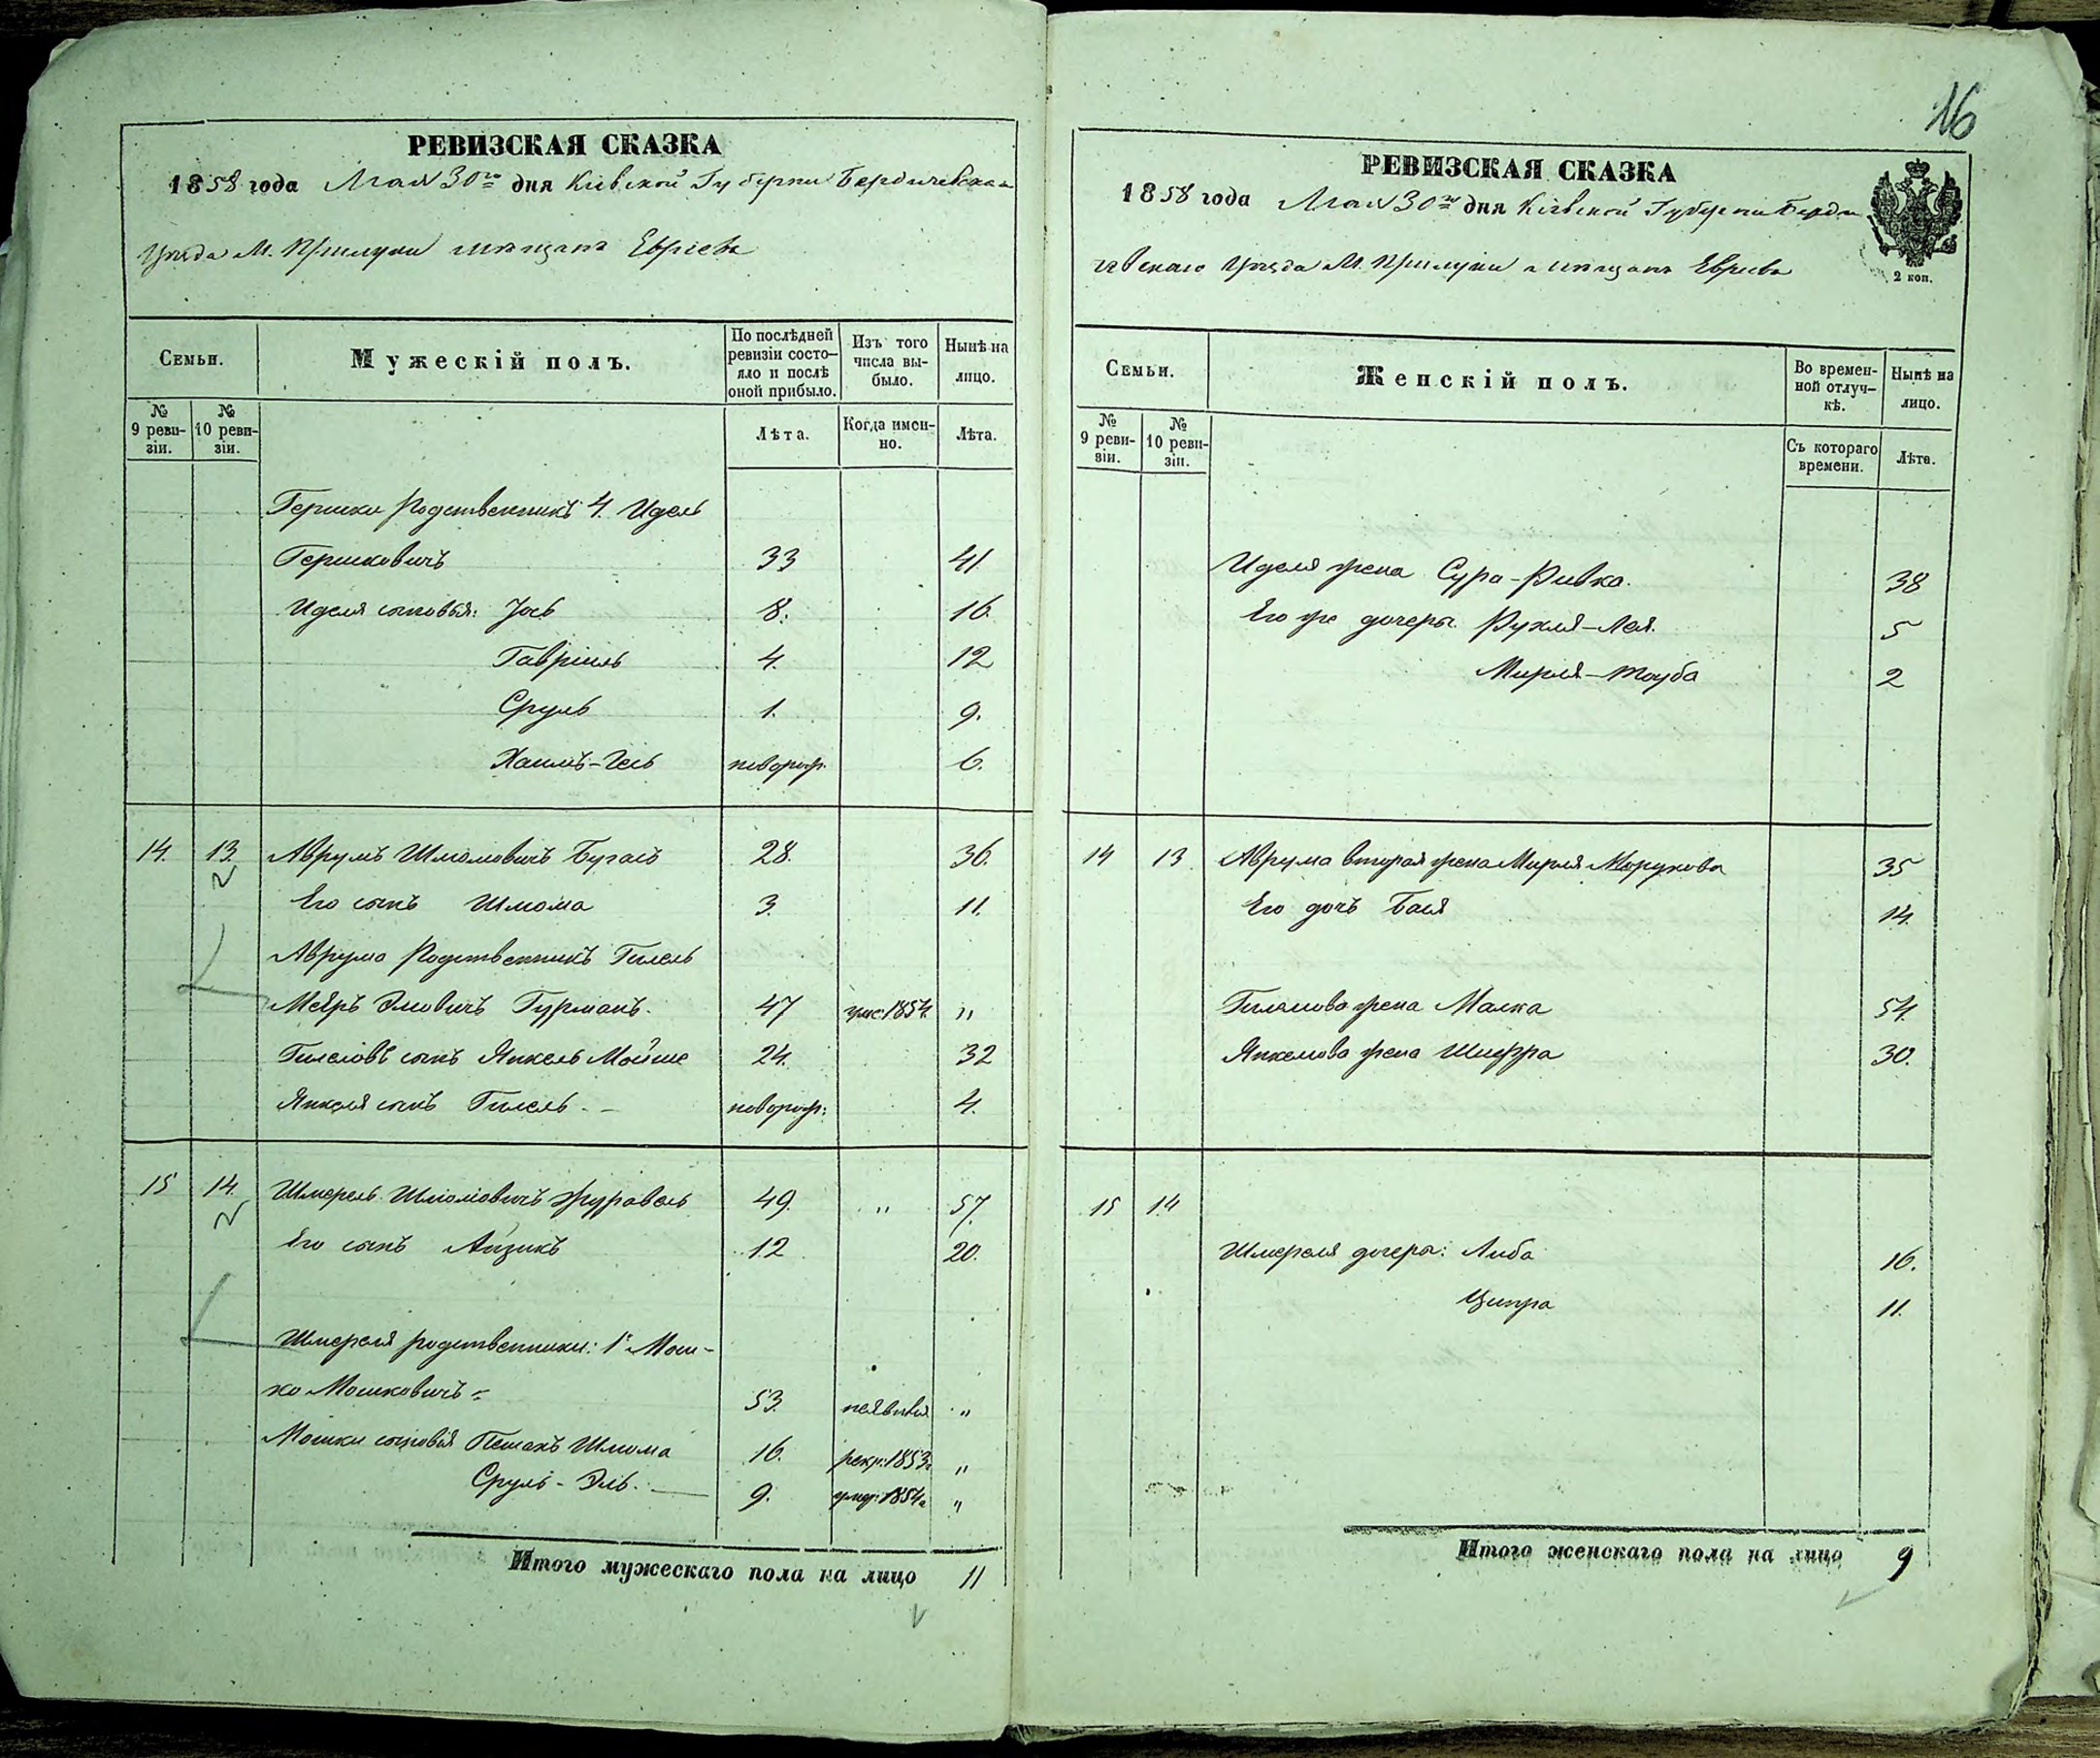 16
РЕВИЗСКАЯ СКАЗКА
1858 года Мая 30го дня Кіевской Губерніи Бердичевскаго
Уѣзда М. Прилуки мѣщанъ Евреевъ
Семьи.
Мужескій полъ.
По послѣдней ревизіи состо-
яло и послѣ оной прибыло.
Изъ того числа вы-
было.
Нынѣ на лицо.
№ 9 реви-
зіи.
№ 10 реви-
зіи.
Лѣта.
Когда имен-
но.
Лѣта.
Гершки Родственникъ 4. Идель
Гершковичъ 33 41
Иделя сыновья: Іось 8. 16.
Гавріиль 4. 12
Сруль 1. 9.
Хаимъ- новорож. 6.
14. 13. Аврумъ Шлiомовичъ Бугась 28. 36.
Его сынъ Шлiома 3. 11.
Аврума Родственникъ Гилель
Меяръ Эліовичъ Гурманъ. 47 уме: 1854. "
Гилеліовъ сынъ Янкель Мойше 24. 32
Янкеля сынъ Гилель. – новорож: 4.
15 14. Шмерель Шліомовичъ Журавель 49. " 57.
Его сынъ Айзикъ 12 20.
Шмереля родственники: 1й Мош-
ко Мошковичъ 53. неявился "
Мошки сыновья Пейсахъ Шлiома 16. рекр: 1853г "
Сруль-Эль. 9. 1854г "
Итого мужескаго пола на лицо 11
РЕВИЗСКАЯ СКАЗКА
1858 года Мая 30го дня Кіевской Губерніи Берди
чевскаго Уѣзда М. Прилуки мѣщанъ Евреевъ
2 коп.
Семьи.
Женскій полъ.
Во времен-
ной отлуч-
кѣ.
Нынѣ на лицо.
№ 9 реви-
зіи.
№ 10 реви-
зіи.
Съ котораго времени.
Лѣта.
Иделя жена Сура-Ривка. 38
Его же дочери Рухля-Лея. 5
Мирля-Тауба 2
14 13 Аврума вторая жена Мирля Моружова 35
Его дочь Бася 14.
Гилелiова жена Малка 54.
Янкелiова жена Шифра 30.
15 14
Шмереля дочери: Либа 16.
Ципра 11.
Итого женскаго пола на лицо 9